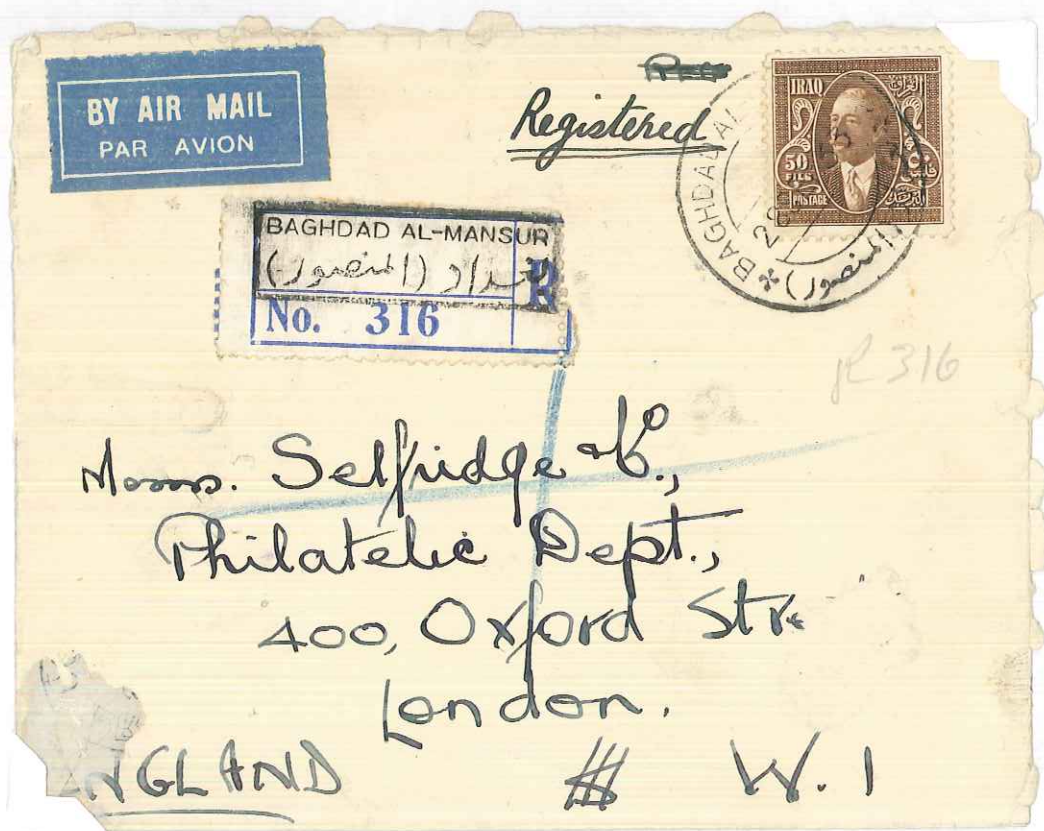 BY AIR MAIL
PAR AVION
Registered
IRAQ
50
FILS
POSTAGE
BAGHDAD AL
(المنصور)
BAGHDAD AL-MANSUR
بغداد (المنصور)
R
No. 316
R 316
Messrs. Selfridge & Co.,
Philatelic Dept.,
400, Oxford Str.
London.
NGLAND W. 1